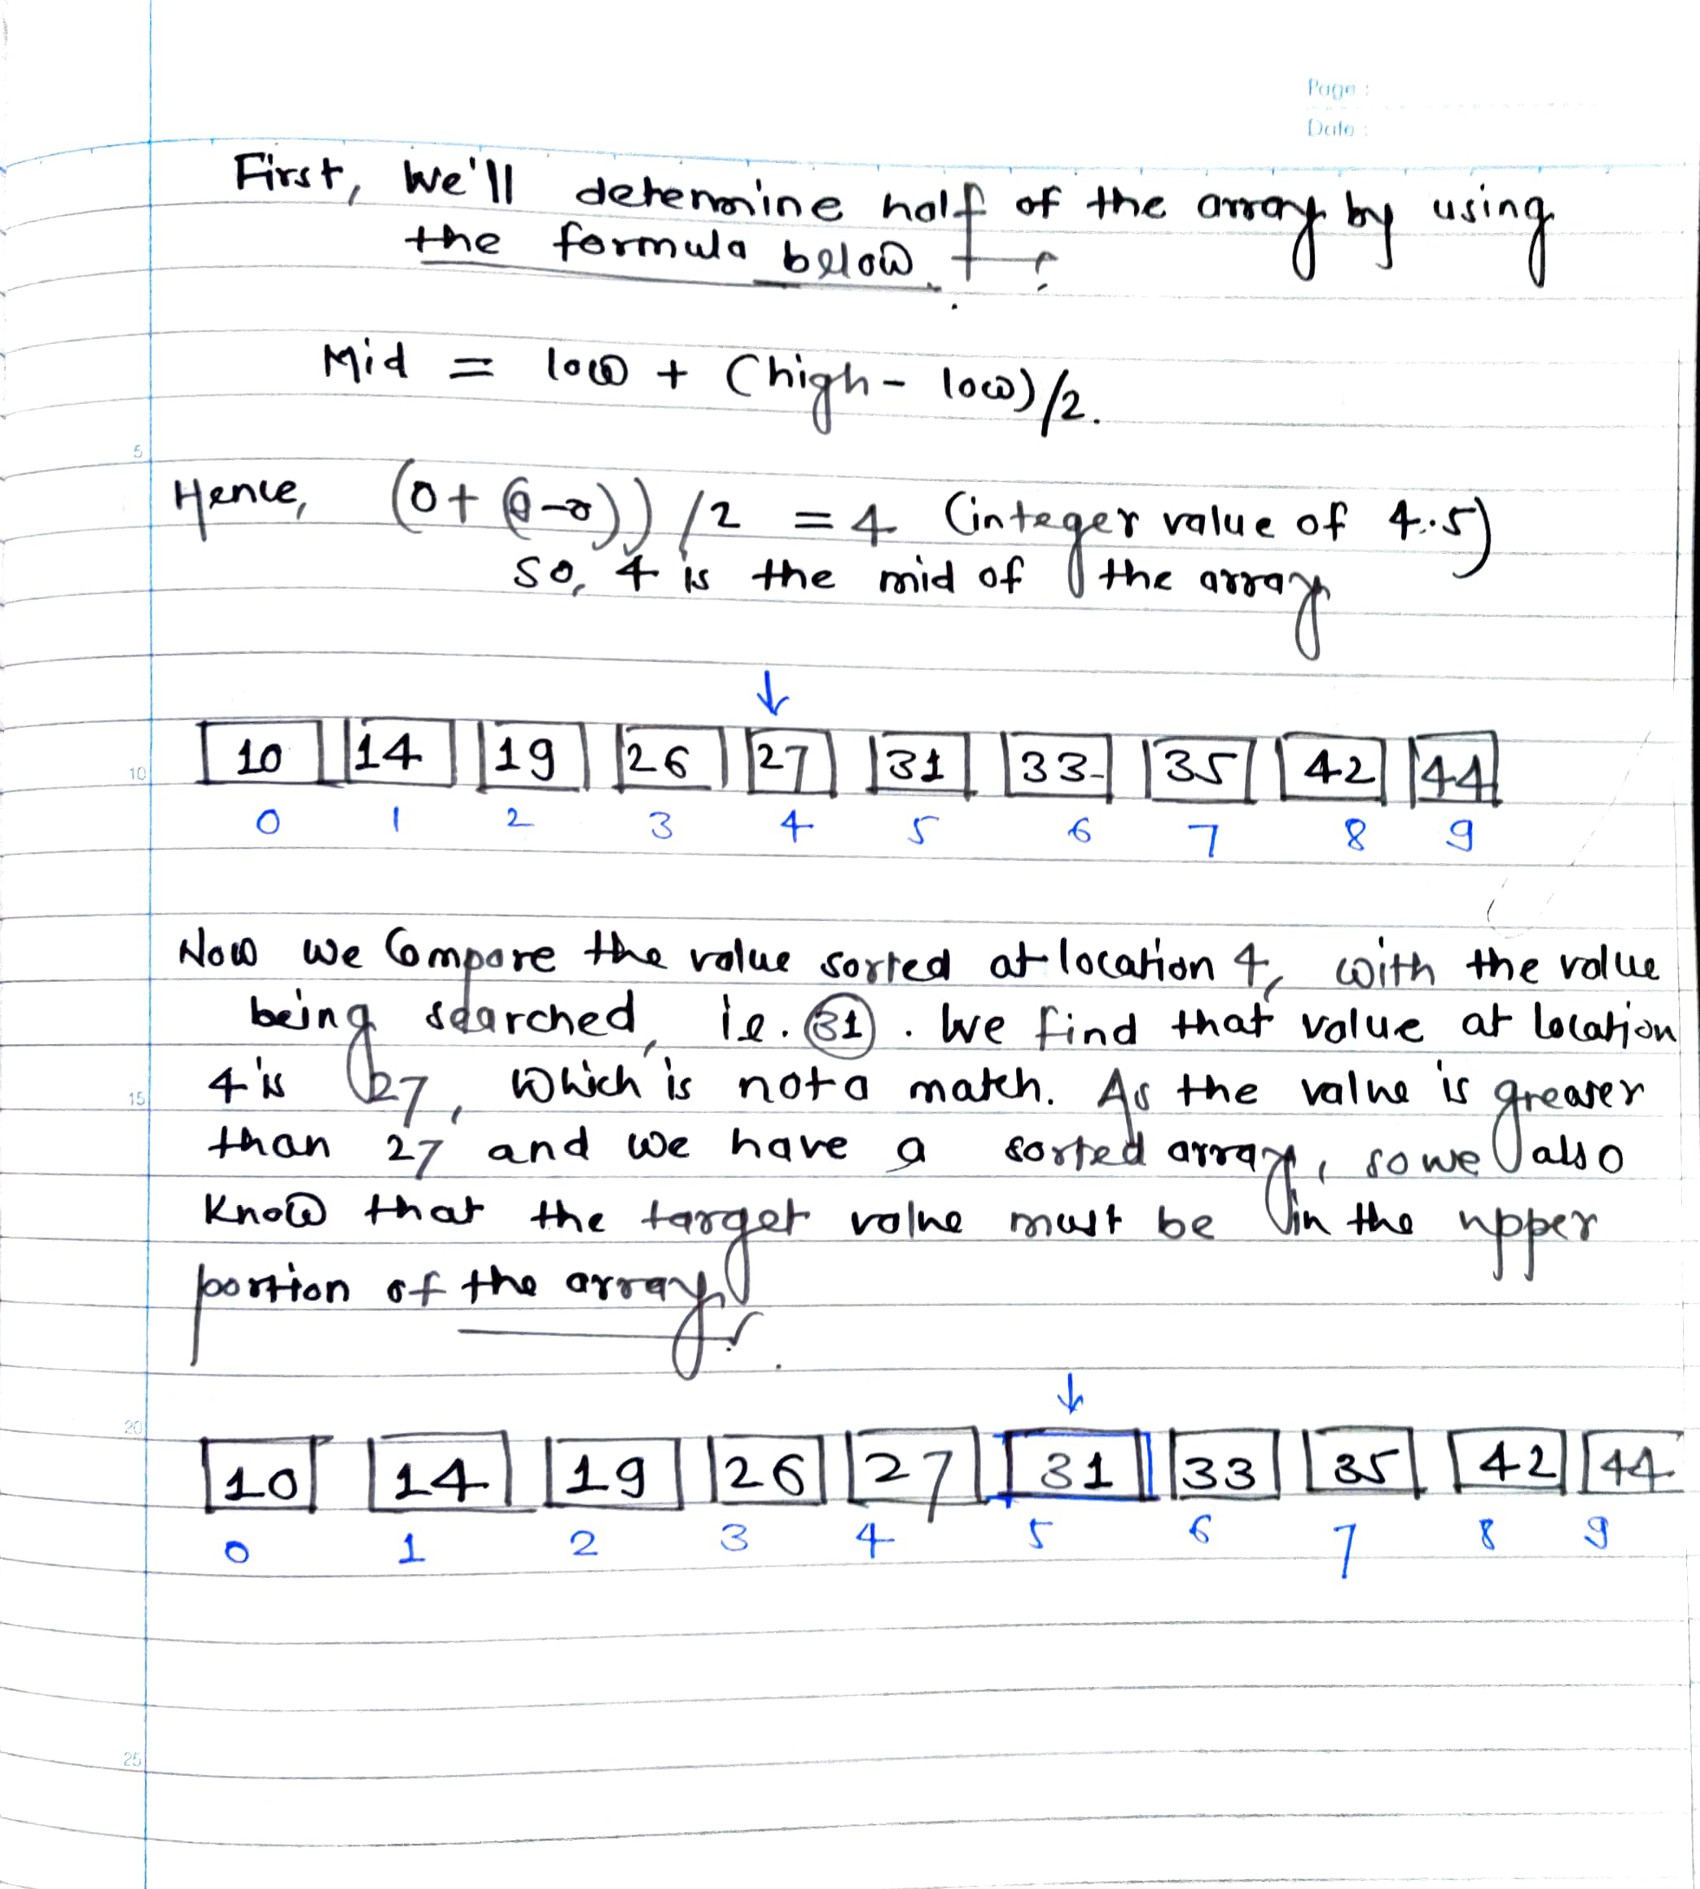 Page :
Date :
First, We'll determine half of the array by using
the formula below :
Mid = low + (high - low)/2.
5
Hence, (0+ (9-0)) /2 = 4 (integer value of 4.5)
So, 4 is the mid of the array
10 14 19 26 27 31 33 35 42 44
10
0 1 2 3 4 5 6 7 8 9
Now we Compare the value sorted at location 4, with the value
being searched, ie. 31. We find that value at location
4 is 27, which is not a match. As the value is greater
15
than 27 and we have a sorted array, so we also
Know that the target value must be in the upper
portion of the array.
20
10 14 19 26 27 31 33 35 42 44
0 1 2 3 4 5 6 7 8 9
25